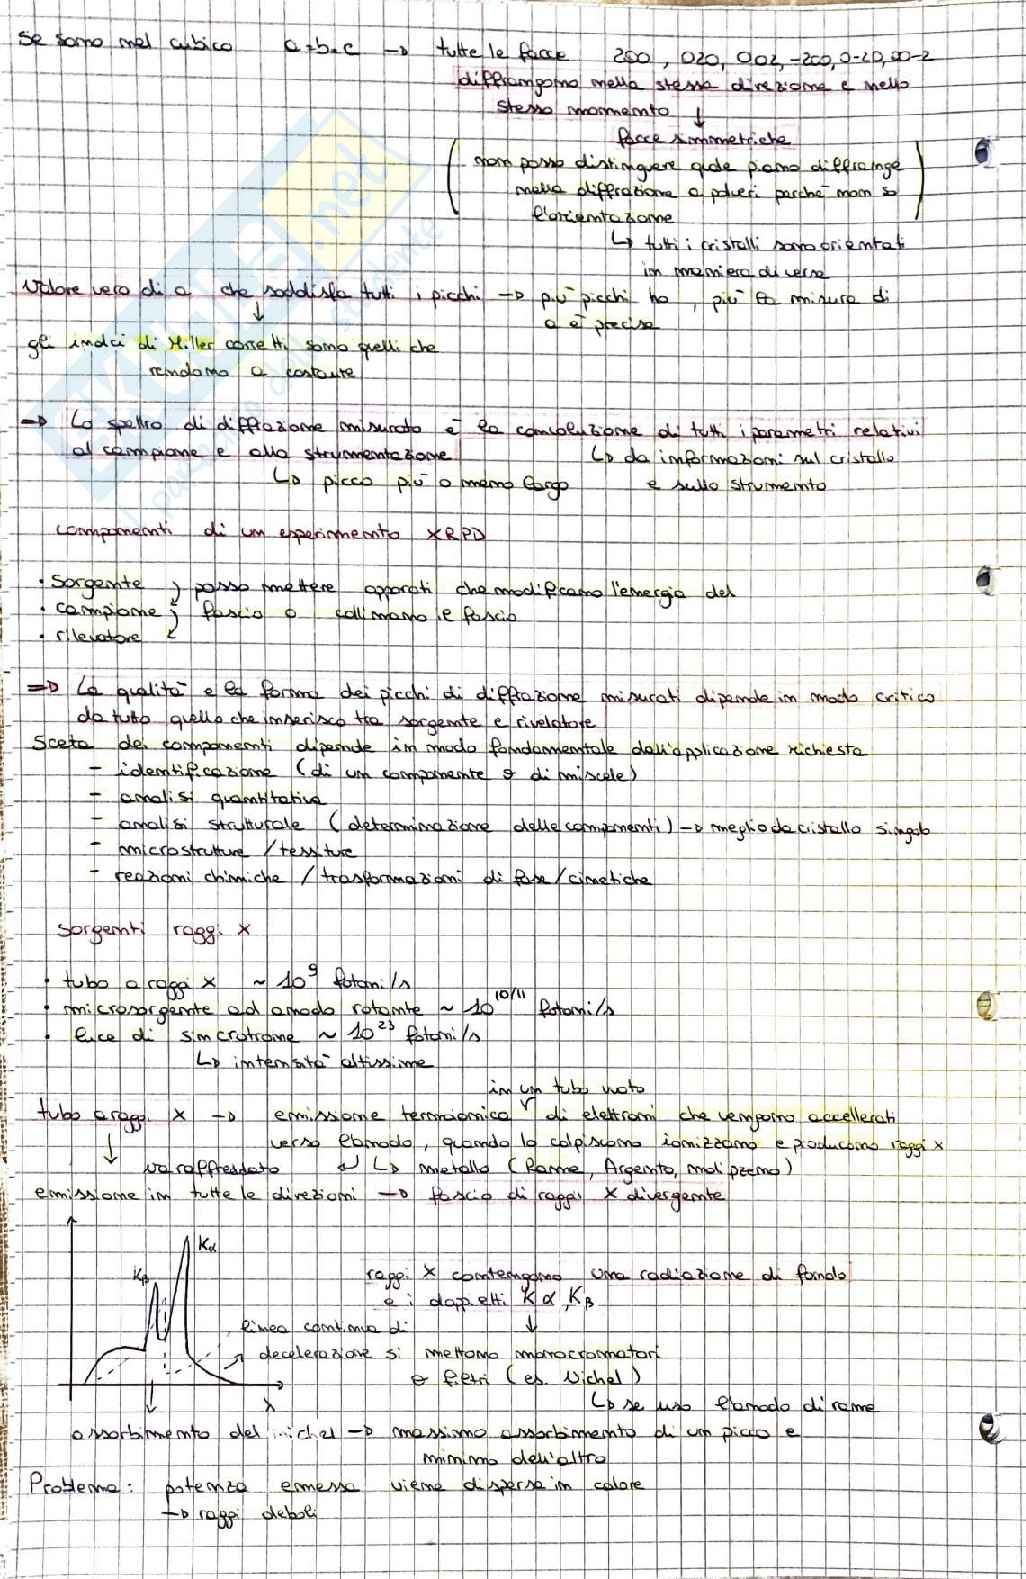 Se sono nel cubico a=b=c → tutte le facce 200, 020, 002, -200, 0-20, 00-2
diffrangono nella stessa direzione e nello
stesso momento ↓
facce simmetriche
(non posso distinguere quale piano diffrange
nella diffrazione a polveri perché non so
l'orientazione)
↳ tutti i cristalli sono orientati
in maniera diversa
Valore vero di a che soddisfa tutti i picchi → più picchi ho, più la misura di
↓ a è precisa
gli indici di Miller corretti sono quelli che
rendono a costante
→ Lo spettro di diffrazione misurato è la convoluzione di tutti i parametri relativi
al campione e alla strumentazione ↳ da informazioni sul cristallo
↳ picco più o meno largo e sullo strumento
componenti di un esperimento XRPD
• sorgente } posso mettere apparati che modificano l'energia del
• campione } fascio o collimano il fascio
• rilevatore
⇒ La qualità e la forma dei picchi di diffrazione misurati dipende in modo critico
da tutto quello che inserisco tra sorgente e rivelatore
Scelta dei componenti dipende in modo fondamentale dall'applicazione richiesta
- identificazione (di un componente o di miscele)
- analisi quantitativa
- analisi strutturale (determinazione delle componenti) → meglio da cristallo singolo
- microstrutture / tessiture
- reazioni chimiche / trasformazioni di fase / cinetiche
sorgenti raggi X
• tubo a raggi X ~ 10⁹ fotoni/s
• microsorgente ad anodo rotante ~ 10^10/11 fotoni/s
• luce di sincrotrone ~ 10²³ fotoni/s
↳ intensità altissime
in un tubo vuoto
tubo a raggi X → emissione termoionica di elettroni che vengono accellerati
↓ verso l'anodo, quando lo colpiscono ionizzano e producono raggi X
va raffreddato ↲ ↳ metallo (Rame, Argento, molibdeno)
emissione in tutte le direzioni → fascio di raggi X divergente
Kα
Kβ
raggi X contengono una radiazione di fondo
e i doppietti Kα, Kβ
linea continua di ↓
decelerazione si mettono monocromatori
o filtri (es. Nichel)
λ ↳ se uso l'anodo di rame
assorbimento del nichel → massimo assorbimento di un picco e
minimo dell'altro
Problema: potenza emessa viene dispersa in calore
→ raggi deboli